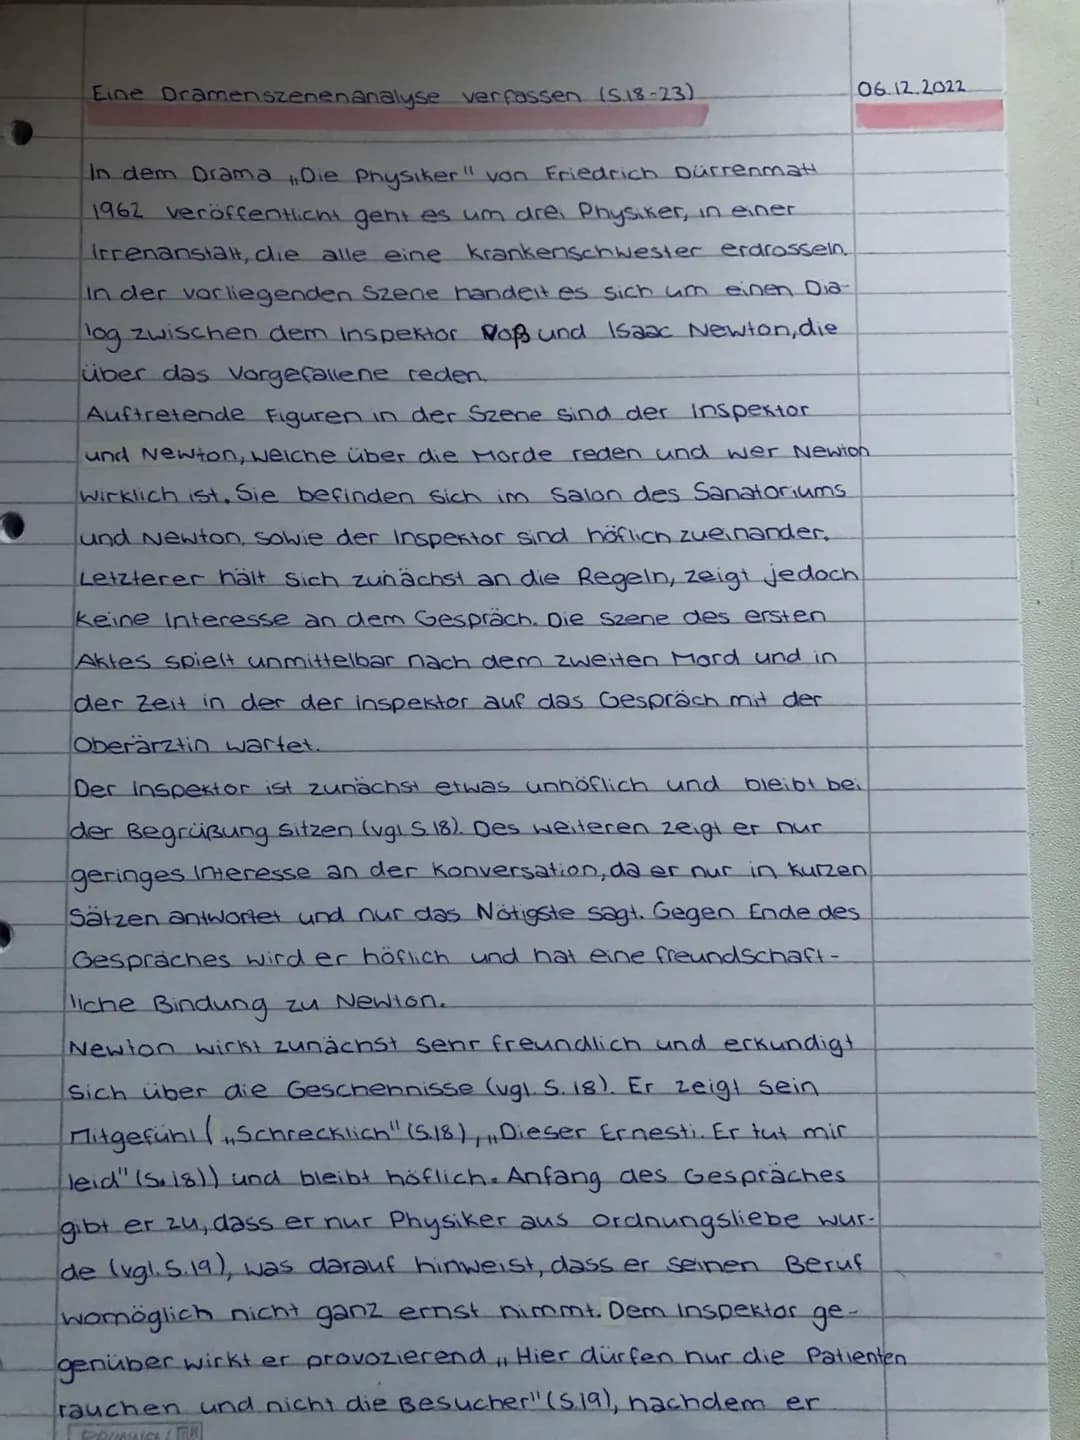 Eine Dramenszenenanalyse verfassen (S.18-23)
06.12.2022
In dem Drama „Die Physiker" von Friedrich Dürrenmatt
1962 veröffentlicht geht es um drei Physiker, in einer
Irrenanstalt, die alle eine Krankenschwester erdrosseln.
In der vorliegenden Szene handelt es sich um einen Dia-
log zwischen dem Inspektor Voß und Isaac Newton, die
über das Vorgefallene reden.
Auftretende Figuren in der Szene sind der Inspektor
und Newton, welche über die Morde reden und wer Newton
wirklich ist. Sie befinden sich im Salon des Sanatoriums
und Newton, sowie der Inspektor sind höflich zueinander.
Letzterer hält sich zunächst an die Regeln, zeigt jedoch
keine Interesse an dem Gespräch. Die Szene des ersten
Aktes spielt unmittelbar nach dem zweiten Mord und in
der Zeit in der der Inspektor auf das Gespräch mit der
Oberärztin wartet.
Der Inspektor ist zunächst etwas unhöflich und bleibt bei
der Begrüßung sitzen (vgl. S.18). Des weiteren zeigt er nur
geringes Interesse an der Konversation, da er nur in kurzen
Sätzen antwortet und nur das Nötigste sagt. Gegen Ende des
Gespräches wird er höflich und hat eine freundschaft-
liche Bindung zu Newton.
Newton wirkt zunächst sehr freundlich und erkundigt
sich über die Geschehnisse (vgl. S. 18). Er zeigt sein
Mitgefühl („Schrecklich" (S.18), „Dieser Ernesti. Er tut mir
leid" (S.18)) und bleibt höflich. Anfang des Gespräches
gibt er zu, dass er nur Physiker aus Ordnungsliebe wur-
de (vgl. S.19), was darauf hinweist, dass er seinen Beruf
womöglich nicht ganz ernst nimmt. Dem Inspektor ge-
genüber wirkt er provozierend „Hier dürfen nur die Patienten
rauchen und nicht die Besucher" (S.19), nachdem er